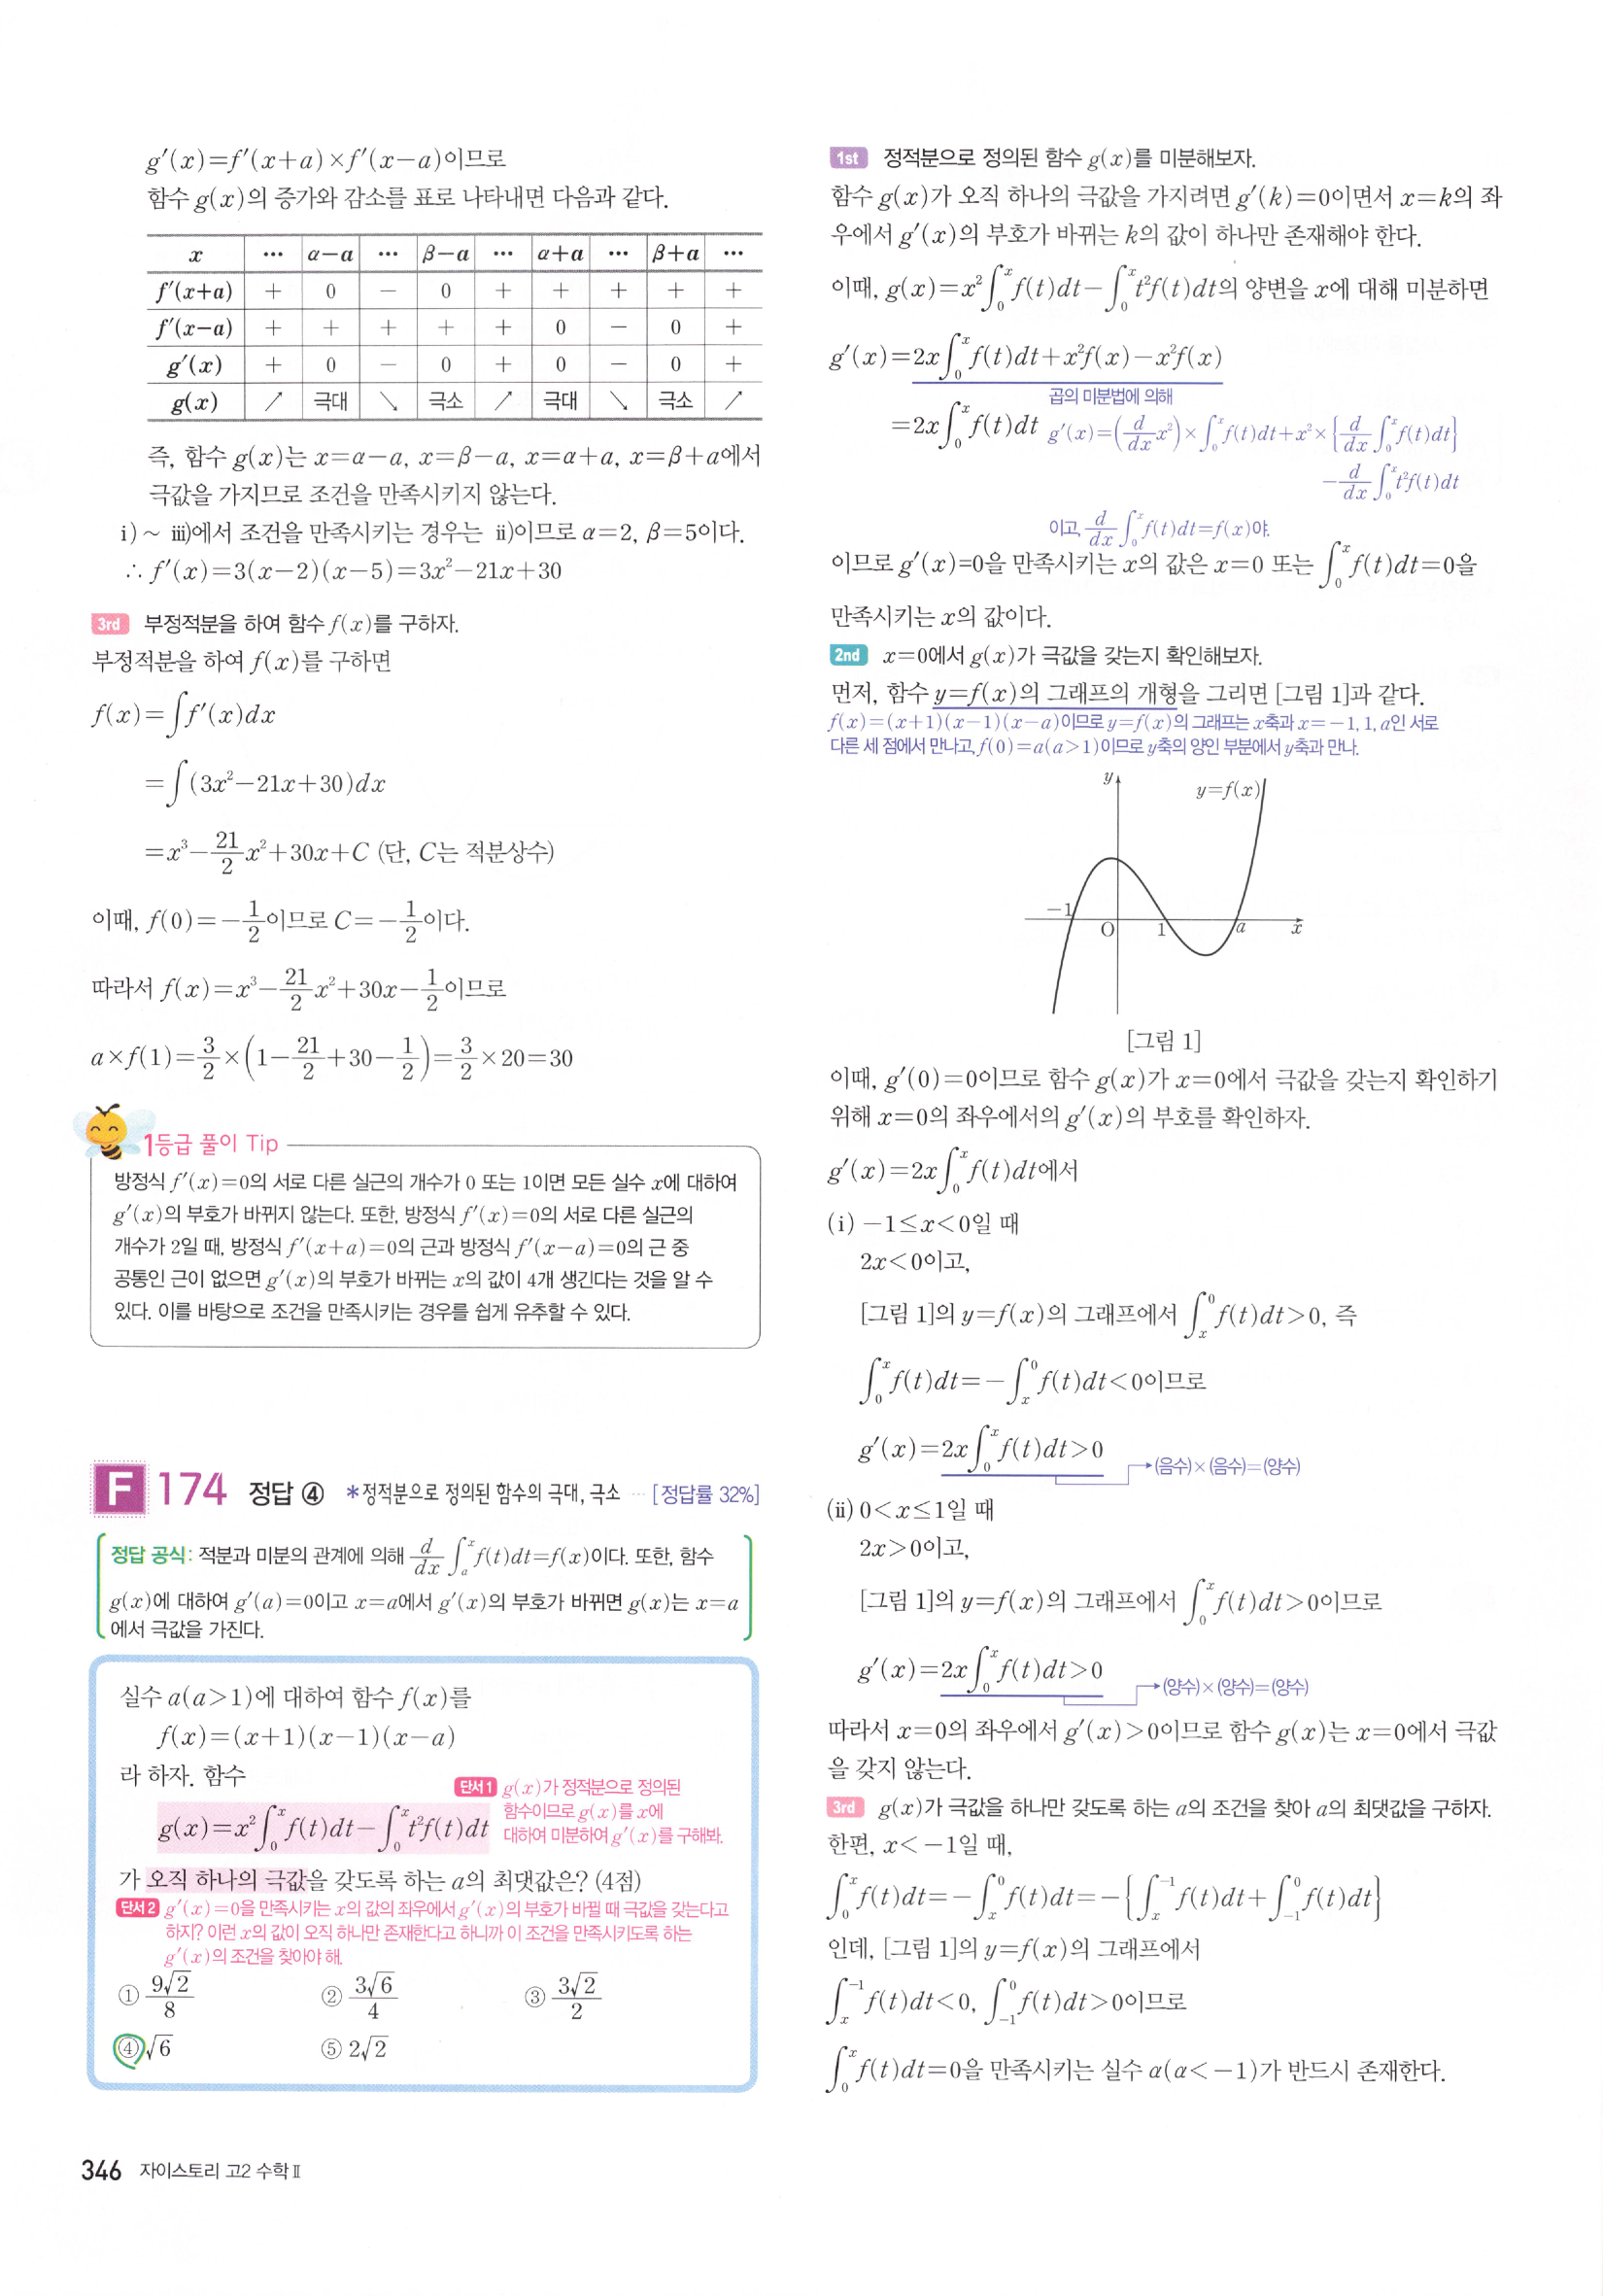 g′(x)=f′(x+a)×f′(x−a)이므로
함수 g(x)의 증가와 감소를 표로 나타내면 다음과 같다.
x ⋯ α−a ⋯ β−a ⋯ α+a ⋯ β+a ⋯
f′(x+a) + 0 − 0 + + + + +
f′(x−a) + + + + + 0 − 0 +
g′(x) + 0 − 0 + 0 − 0 +
g(x) ↗ 극대 ↘ 극소 ↗ 극대 ↘ 극소 ↗
즉, 함수 g(x)는 x=α−a, x=β−a, x=α+a, x=β+a에서
극값을 가지므로 조건을 만족시키지 않는다.
ⅰ)~ ⅲ)에서 조건을 만족시키는 경우는 ⅱ)이므로 α=2, β=5이다.
∴ f′(x)=3(x−2)(x−5)=3x²−21x+30
3rd 부정적분을 하여 함수 f(x)를 구하자.
부정적분을 하여 f(x)를 구하면
f(x)=∫f′(x)dx
=∫(3x²−21x+30)dx
=x³−21/2x²+30x+C (단, C는 적분상수)
이때, f(0)=−1/2이므로 C=−1/2이다.
따라서 f(x)=x³−21/2x²+30x−1/2이므로
a×f(1)=3/2×(1−21/2+30−1/2)=3/2×20=30
1등급 풀이 Tip
방정식 f′(x)=0의 서로 다른 실근의 개수가 0 또는 1이면 모든 실수 x에 대하여
g′(x)의 부호가 바뀌지 않는다. 또한, 방정식 f′(x)=0의 서로 다른 실근의
개수가 2일 때, 방정식 f′(x+a)=0의 근과 방정식 f′(x−a)=0의 근 중
공통인 근이 없으면 g′(x)의 부호가 바뀌는 x의 값이 4개 생긴다는 것을 알 수
있다. 이를 바탕으로 조건을 만족시키는 경우를 쉽게 유추할 수 있다.
F 174 정답 ④ *정적분으로 정의된 함수의 극대, 극소 ⋯ [정답률 32%]
정답 공식: 적분과 미분의 관계에 의해 d/dx ∫ₐˣ f(t)dt=f(x)이다. 또한, 함수
g(x)에 대하여 g′(a)=0이고 x=a에서 g′(x)의 부호가 바뀌면 g(x)는 x=a
에서 극값을 가진다.
실수 a(a>1)에 대하여 함수 f(x)를
f(x)=(x+1)(x−1)(x−a)
라 하자. 함수
단서1 g(x)가 정적분으로 정의된
함수이므로 g(x)를 x에
대하여 미분하여 g′(x)를 구해봐.
g(x)=x²∫₀ˣ f(t)dt−∫₀ˣ t²f(t)dt
가 오직 하나의 극값을 갖도록 하는 a의 최댓값은? (4점)
단서2 g′(x)=0을 만족시키는 x의 값의 좌우에서 g′(x)의 부호가 바뀔 때 극값을 갖는다고
하지? 이런 x의 값이 오직 하나만 존재한다고 하니까 이 조건을 만족시키도록 하는
g′(x)의 조건을 찾아야 해.
① 9√2/8 ② 3√6/4 ③ 3√2/2
④ √6 ⑤ 2√2
346 자이스토리 고2 수학Ⅱ
1st 정적분으로 정의된 함수 g(x)를 미분해보자.
함수 g(x)가 오직 하나의 극값을 가지려면 g′(k)=0이면서 x=k의 좌
우에서 g′(x)의 부호가 바뀌는 k의 값이 하나만 존재해야 한다.
이때, g(x)=x²∫₀ˣ f(t)dt−∫₀ˣ t²f(t)dt의 양변을 x에 대해 미분하면
g′(x)=2x∫₀ˣ f(t)dt+x²f(x)−x²f(x)
곱의 미분법에 의해
=2x∫₀ˣ f(t)dt g′(x)=(d/dx x²)×∫₀ˣ f(t)dt+x²×{d/dx ∫₀ˣ f(t)dt}
−d/dx ∫₀ˣ t²f(t)dt
이고, d/dx ∫₀ˣ f(t)dt=f(x)야.
이므로 g′(x)=0을 만족시키는 x의 값은 x=0 또는 ∫₀ˣ f(t)dt=0을
만족시키는 x의 값이다.
2nd x=0에서 g(x)가 극값을 갖는지 확인해보자.
먼저, 함수 y=f(x)의 그래프의 개형을 그리면 [그림 1]과 같다.
f(x)=(x+1)(x−1)(x−a)이므로 y=f(x)의 그래프는 x축과 x=−1, 1, a인 서로
다른 세 점에서 만나고, f(0)=a(a>1)이므로 y축의 양인 부분에서 y축과 만나.
y y=f(x)
−1 O 1 a x
[그림 1]
이때, g′(0)=0이므로 함수 g(x)가 x=0에서 극값을 갖는지 확인하기
위해 x=0의 좌우에서의 g′(x)의 부호를 확인하자.
g′(x)=2x∫₀ˣ f(t)dt에서
(ⅰ) −1≤x<0일 때
2x<0이고,
[그림 1]의 y=f(x)의 그래프에서 ∫ₓ⁰ f(t)dt>0, 즉
∫₀ˣ f(t)dt=−∫ₓ⁰ f(t)dt<0이므로
g′(x)=2x∫₀ˣ f(t)dt>0 →(음수)×(음수)=(양수)
(ⅱ) 0<x≤1일 때
2x>0이고,
[그림 1]의 y=f(x)의 그래프에서 ∫₀ˣ f(t)dt>0이므로
g′(x)=2x∫₀ˣ f(t)dt>0 →(양수)×(양수)=(양수)
따라서 x=0의 좌우에서 g′(x)>0이므로 함수 g(x)는 x=0에서 극값
을 갖지 않는다.
3rd g(x)가 극값을 하나만 갖도록 하는 a의 조건을 찾아 a의 최댓값을 구하자.
한편, x<−1일 때,
∫₀ˣ f(t)dt=−∫ₓ⁰ f(t)dt=−{∫ₓ⁻¹ f(t)dt+∫₋₁⁰ f(t)dt}
인데, [그림 1]의 y=f(x)의 그래프에서
∫ₓ⁻¹ f(t)dt<0, ∫₋₁⁰ f(t)dt>0이므로
∫₀ˣ f(t)dt=0을 만족시키는 실수 α(α<−1)가 반드시 존재한다.